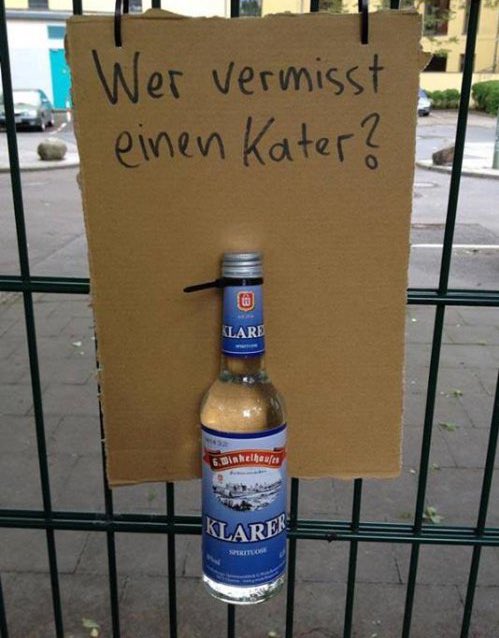 Wer vermisst
einen Kater?
KLARER
SPIRITUOSE
G.Winkelhausen
KLARER
SPIRITUOSE